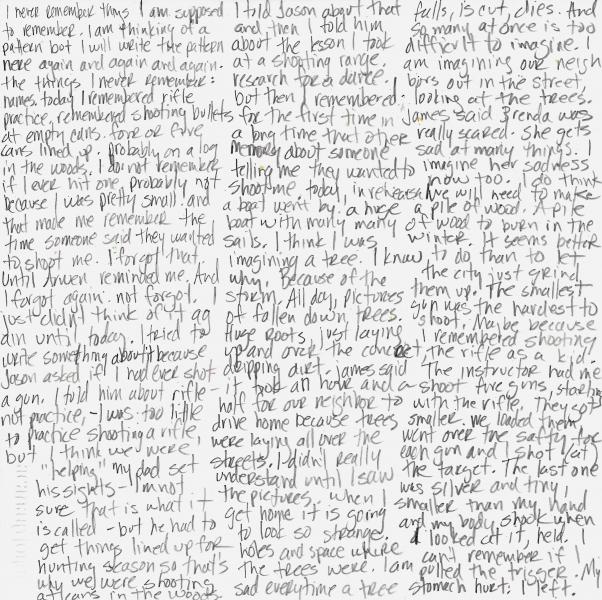 I never remember things I am supposed
to remember. I am thinking of a
pattern but I will write the pattern
here again and again and again.
the things I never remember:
names. today I remembered rifle
practice, remembered shooting bullets
at empty cans. four or five
cans lined up. probably on a log
in the woods. I do not remember
if I ever hit one, probably not
because I was pretty small. and
that made me remember the
time someone said they wanted
to shoot me. I forgot that.
until Anwen reminded me. And
I forgot again. not forgot. I
just didn't think of it ag
ain until today. I tried to
write something about it because
Jason asked if I had ever shot
a gun. I told him about rifle -
not practice, - I was too little
to practice shooting a rifle
but I think we were,
"helping" my dad set
his sights - I'm not
sure that is what it
is called - but he had to
get things lined up for
hunting season so that's
why we were shooting
at cans in the woods.
I told Jason about that
and then I told him
about the lesson I took
at a shooting range.
research for a dance.
but then I remembered:
for the first time in
a long time that other
memory about someone
telling me they wanted to
shoot me. today, in rehearsal
a boat went by. a huge
boat with many many
sails. I think I was
imagining a tree. I know
why. Because of the
storm. All day, pictures
of fallen down trees.
Huge roots just laying
up and over the concrete,
dripping dirt. James said
it took an hour and a
half for our neighbor to
drive home because trees
were laying all over the
streets. I didn't really
understand until I saw
the pictures. when I
get home it is going
to look so strange.
holes and space where
the trees were. I am
sad everytime a tree
falls, is cut, dies. And
so many at once is too
difficult to imagine. I
am imagining our neigh
bors out in the street,
looking at the trees.
James said Brenda was
really scared. She gets
sad at many things. I
imagine her sadness
now too. I do think
we will need to make
a pile of wood. A pile
of wood to burn in the
winter. It seems better
to do than to let
the city just grind
them up. The smallest
gun was the hardest to
shoot. Maybe because
I remembered shooting
the rifle as a kid.
The instructor had me
shoot five guns, starting
with the rifle. They got
smaller. we loaded them
went over the safty for
each gun and I shot (at)
the target. The last one
was silver and tiny,
smaller than my hand
and my body shook when
I looked at it, held. I
can't remember if I
pulled the trigger. My
stomach hurt. I left.